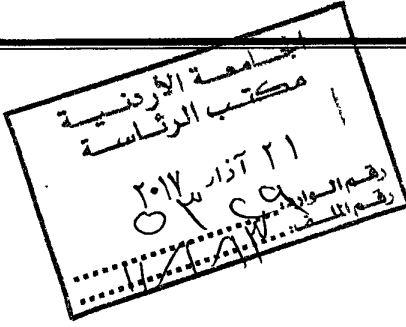 الجامعة الأردنية
مكتب الرئاسة
٢١ آذار ٢٠١٧
رقم الوارد:
رقم الملف: